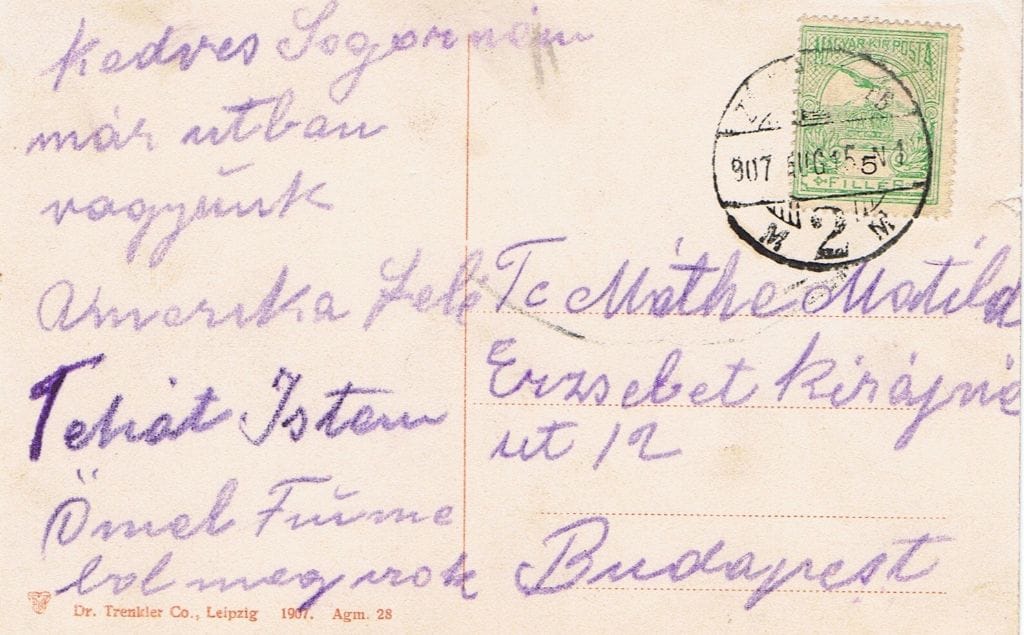 Kedves Sogornöm
már utban
vagyunk
Amerika Felé
Tehát Isten
Önnel Fiume
bol meg irok
MAGYAR KIR POSTA
5
FILLÉR
907 AUG 15 N1
2
Tc Máthe Matild
Erzsebet Királyné
ut 12
Budapest
Dr. Trenkler Co., Leipzig 1907. Agm. 28